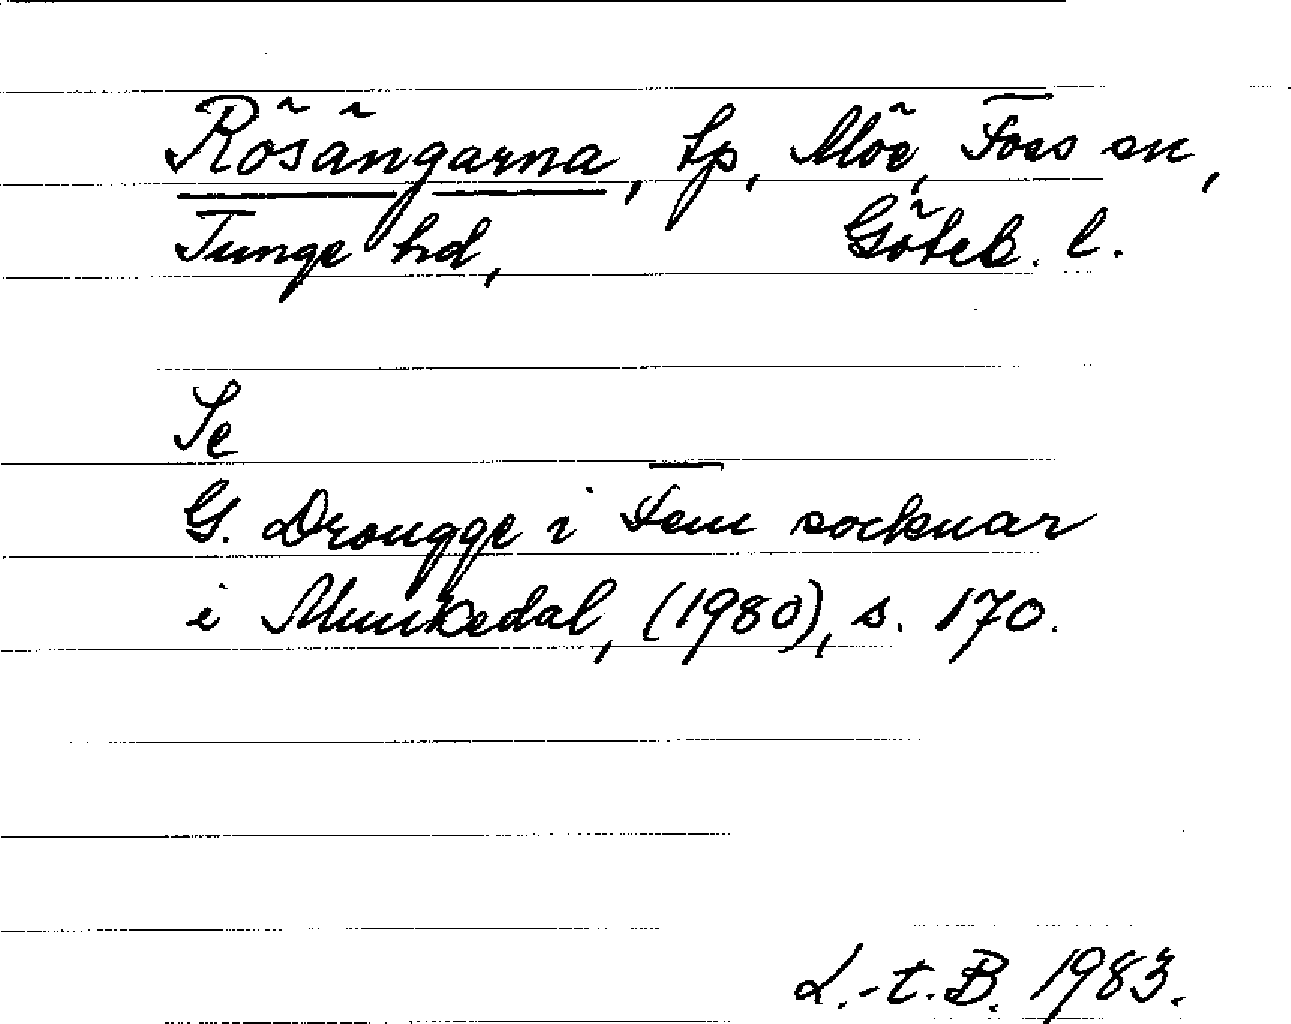 Rösängarna, tp, Möe, Foss sn,
Tunge hd, Göteb. l.
Se
G. Drougge i Fem socknar
i Munkedal, (1980), s. 170.
L.-t. B. 1983.